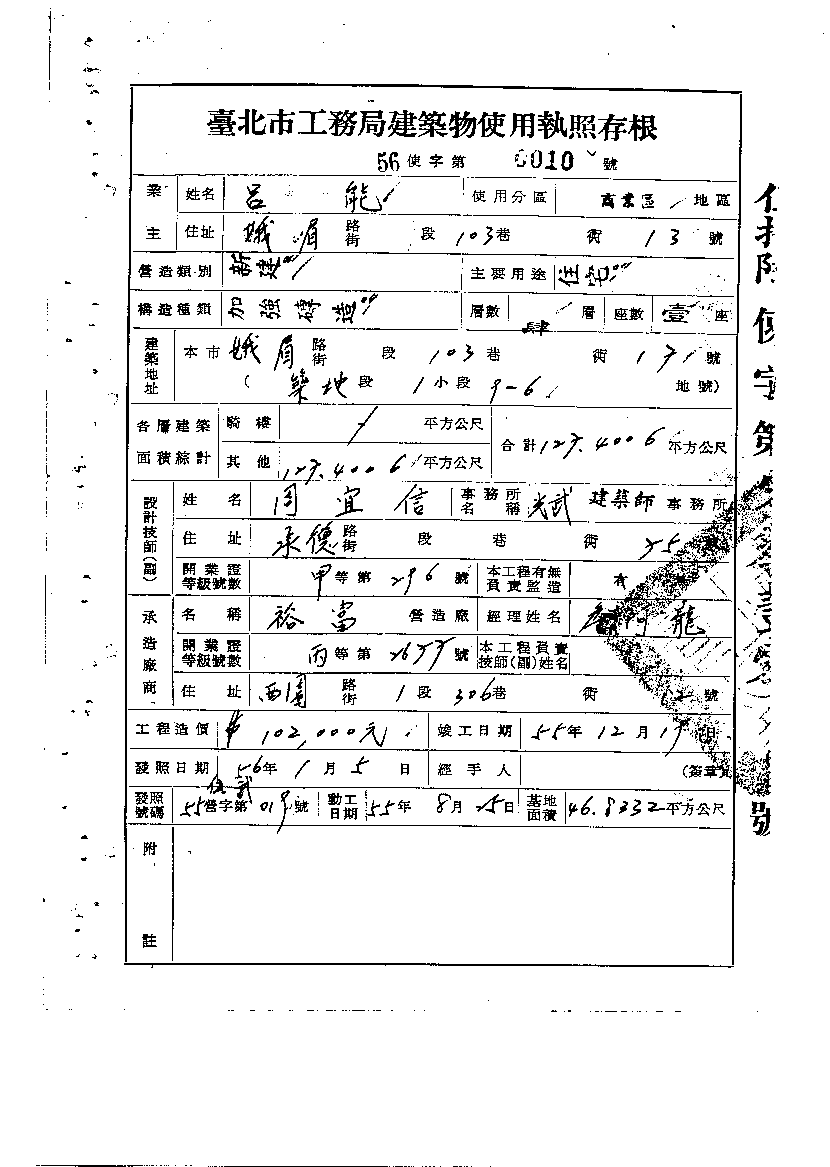 臺北市工務局建築物使用執照存根
56 使字第 0010 號
業主 姓名 呂 能 使用分區 商業區 地區
住址 峨嵋 路街 段 103巷 街 13 號
營造類別 新建 主要用途 住宅
構造種類 加強磚造 層數 肆 層 座數 壹 座
建築地址 本市 峨眉 路街 段 103巷 街 13 號
( 築地 段 1 小段 9-6 地號)
各層建築面積綜計 騎樓 平方公尺 合計 127.4006 平方公尺
其他 127.4006 平方公尺
設計技師(副) 姓名 周宜信 事務所名稱 光武 建築師 事務所
住址 承德 路街 段 巷 街 25
開業證等級號數 甲 等第 296 號 本工程有無負責監造 有
承造廠商 名稱 裕富 營造廠 經理姓名 阿龍
開業證等級號數 丙 等第 號 本工程負責技師(副)姓名
住址 西園 路街 1 段 306巷 街 12 號
工程造價 102,000元 竣工日期 55年 12月 日
發照日期 56年 1月 5 日 經手人 (簽章)
發照號碼 55 營字第 019 號 動工日期 55年 8月 25日 基地面積 46.8332 平方公尺
附註
使字第
號